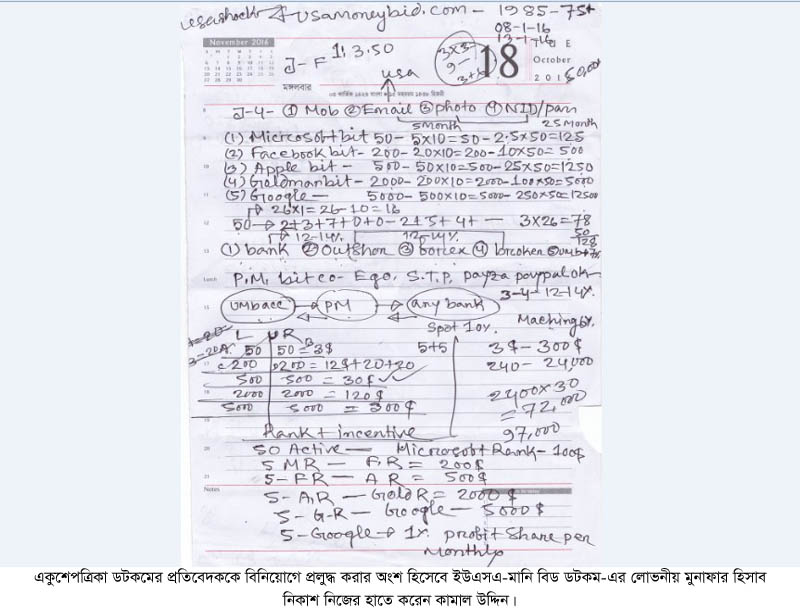 usamoneybid.com - 1985-75+
08-1-16
13-1-16
November 2016
J-F 1:3.50
3x3-
9-
3+6
18
TUE
October
201
মঙ্গলবার
usa
J-4- ① Mob ② Email ③ photo ④ NID/pass
5 Month
25 Month
(1) Microsoft bit 50- 5x10=50- 2.5x50=125
(2) Facebook bit- 200-20x10=200-10x50= 500
(3) Apple bit - 500-50x10=500-25x50=1250
(4) Goldmanbit- 2000-200x10=2000-100x50=5000
(5) Google - 5000-500x10=5000-250x50=12500
26x1=26-10=16
50→2+3+7+0+0-2+5+4+ — 3x26=78
50
128
12-14% 12-14%
① bank ② ③ forex ④
Lunch
P.M, bitco- Ego, S.T.P, payza paypal ok
3-4-12-14%
PM
any bank
Spot 10%
Maching 6%
L R
50 50=3$ 5+5 3$-300$
200 200=12$+20+20 240-24,000
500 500=30$
2000 2000=120$ 2400x30
5000 5000=300$ =72,000
97,000
Rank+incentive
50 Active — Microsoft Rank-100$
5 MR — F.R = 200$
5-FR — A R = 500$
Notes
5-A.R — Gold R = 2000$
5-G-R — Google - 5000$
5-Google→ 1% profit share per
Monthly
একুশেপত্রিকা ডটকমের প্রতিবেদককে বিনিয়োগে প্রলুব্ধ করার অংশ হিসেবে ইউএসএ-মানি বিড ডটকম-এর লোভনীয় মুনাফার হিসাব
নিকাশ নিজের হাতে করেন কামাল উদ্দিন।